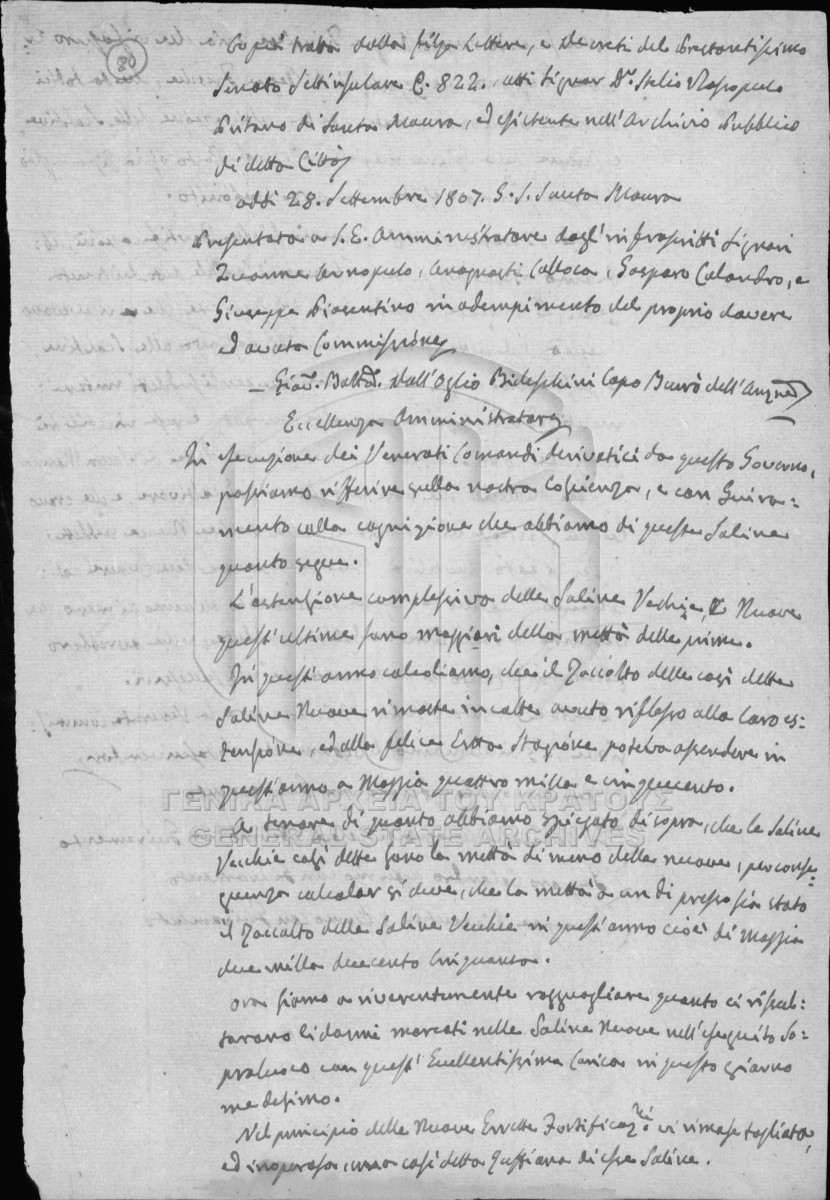 80
Copia tratta dalla filza Lettere, e Decreti del Prestantissimo
Senato Settinsulare C. 822. atti Signor Dr. Stelio Vlassopulo
Pritano di Santa Maura, ed esistente nell'Archivio Pubblico
di detta Città
addi 28. Settembre 1807. S. S. Santa Maura
Presentata a S. E. Amministratore dagl'infrascritti Signori
Zuanne Connopulo, Anagnosti Calloca, Gasparo Calandro, e
Giuseppe Piosentino in adempimento del proprio dovere
ed avuta Commissione
Giov. Batta. Dall'Oglio Capo Burò dell'
Eccellenza Amministratore
In esecuzione dei Venerati Comandi derivatici da questo Governo,
passiamo rifferire sulla nostra Coscienza, e con Giura=
mento colla cognizione che abbiamo di queste Saline
quanto segue.
L'estenzione complessiva delle Saline Vechie, e Nuove
quest'ultime sono maggiori della mettà delle prime.
In quest'anno calcoliamo, che il Raccolto delle così dette
Saline Nuove rimaste incolte avuto riflesso alla loro es=
tensione, ed alla felice Stagione poteva ascendere in
quest'anno a Moggia quattro milla e cinquecento.
A tenore di quanto abbiamo spiegato di sopra, che le Saline
Vecchie così dette sono la mettà di meno delle nuove, per conse=
guenza calcolar si deve, che la mettà a un di presso sia stato
il Raccolto delle Saline Vecchie in quest'anno cioè di Moggia
due milla duecento cinquanta.
Ora siamo a riverentemente ragguagliare quanto ci risul=
tarono li danni marcati nelle Saline Nuove nell'eseguito So=
praluoco con quest'Eccellentissima Carica in questo giorno
medesimo.
Nel principio delle Nuove Erette Fortificazni. vi rimase tagliata,
ed inoperosa, una così detta di esse Saline.
ΓΕΝΙΚΑ ΑΡΧΕΙΑ ΤΟΥ ΚΡΑΤΟΥΣ
GENERAL STATE ARCHIVES